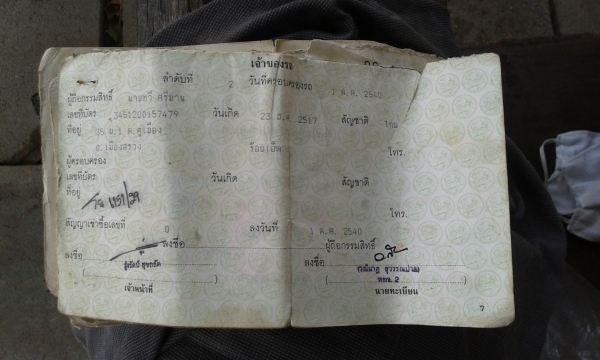 เจ้าของรถ
ลำดับที่ 2 วันที่ครอบครองรถ 1 ต.ค. 2540
ผู้ถือกรรมสิทธิ์ นายทวี ศรีมาน
เลขที่บัตร 3451200157479 วันเกิด 23 2517 สัญชาติ ไทย
ที่อยู่ 35 ม.1 ต.คูเมือง
อ.เมืองสรวง ร้อยเอ็ด โทร.
ผู้ครอบครอง
เลขที่บัตร วันเกิด สัญชาติ
ที่อยู่
โทร.
สัญญาเช่าซื้อเลขที่ 0 ลงวันที่ 1 ต.ค. 2540
ลงชื่อ ผู้ถือกรรมสิทธิ์
ลงชื่อ
เจ้าหน้าที่ นายทะเบียน
7